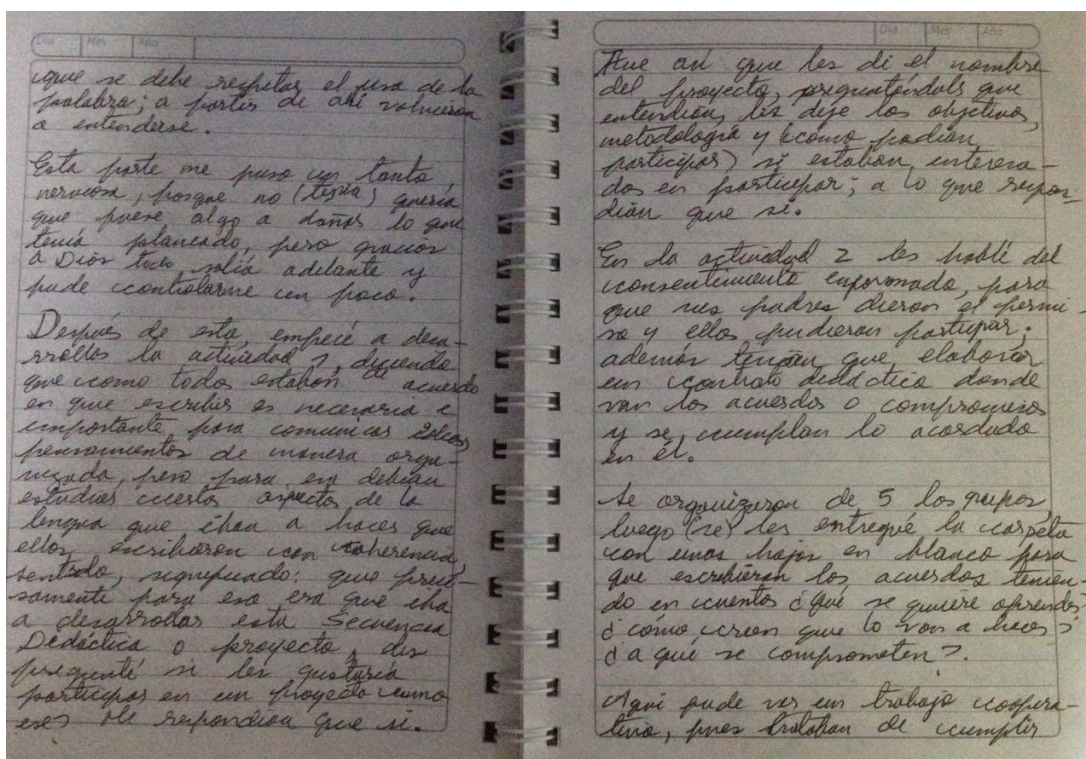 Día Mes Año
que se debe respetar el uso de la
palabra; a partir de ahí volvieron
a entenderse.
Esta parte me puso un tanto
nerviosa, porque no (tenia) quería
que fuese algo a dañar lo que
tenía planeado, pero gracias
a Dios todo salió adelante y
pude controlarme un poco.
Después de esto, empecé a desa-
rrollar la actividad 2, diciendo
que como todos estaban de acuerdo
en que escribir es necesario e
importante para comunicar
pensamientos de manera orga-
nizada, pero para eso debían
estudiar ciertos aspectos de la
lengua que iban a hacer que
ellos escribieran con coherencia,
sentido, significado; que preci-
samente para eso era que iba
a desarrollar esta Secuencia
Didáctica o proyecto, les
pregunté si les gustaría
participar en un proyecto como
ese; me respondian que si.
Día Mes Año
Fue así que les di el nombre
del proyecto, preguntándoles que
entendían, les dije los objetivos,
metodología y (como podían
participar) si estaban interesa-
dos en participar; a lo que respon-
dían que sí.
En la actividad 2 les hablé del
consentimiento informado, para
que sus padres dieran el permi-
so y ellos pudieran participar;
además tenían que elaborar
un contrato didáctico donde
van los acuerdos o compromisos
y se cumplan lo acordado
en él.
Se organizaron de 5 los grupos,
luego (se) les entregué la carpeta
con unas hojas en blanco para
que escribieran los acuerdos tenien-
do en cuentos ¿Qué se quiere aprender?
¿cómo creen que lo van a hacer?
¿a qué se comprometen?.
Aquí pude ver un trabajo coopera-
tivo, pues trataban de cumplir